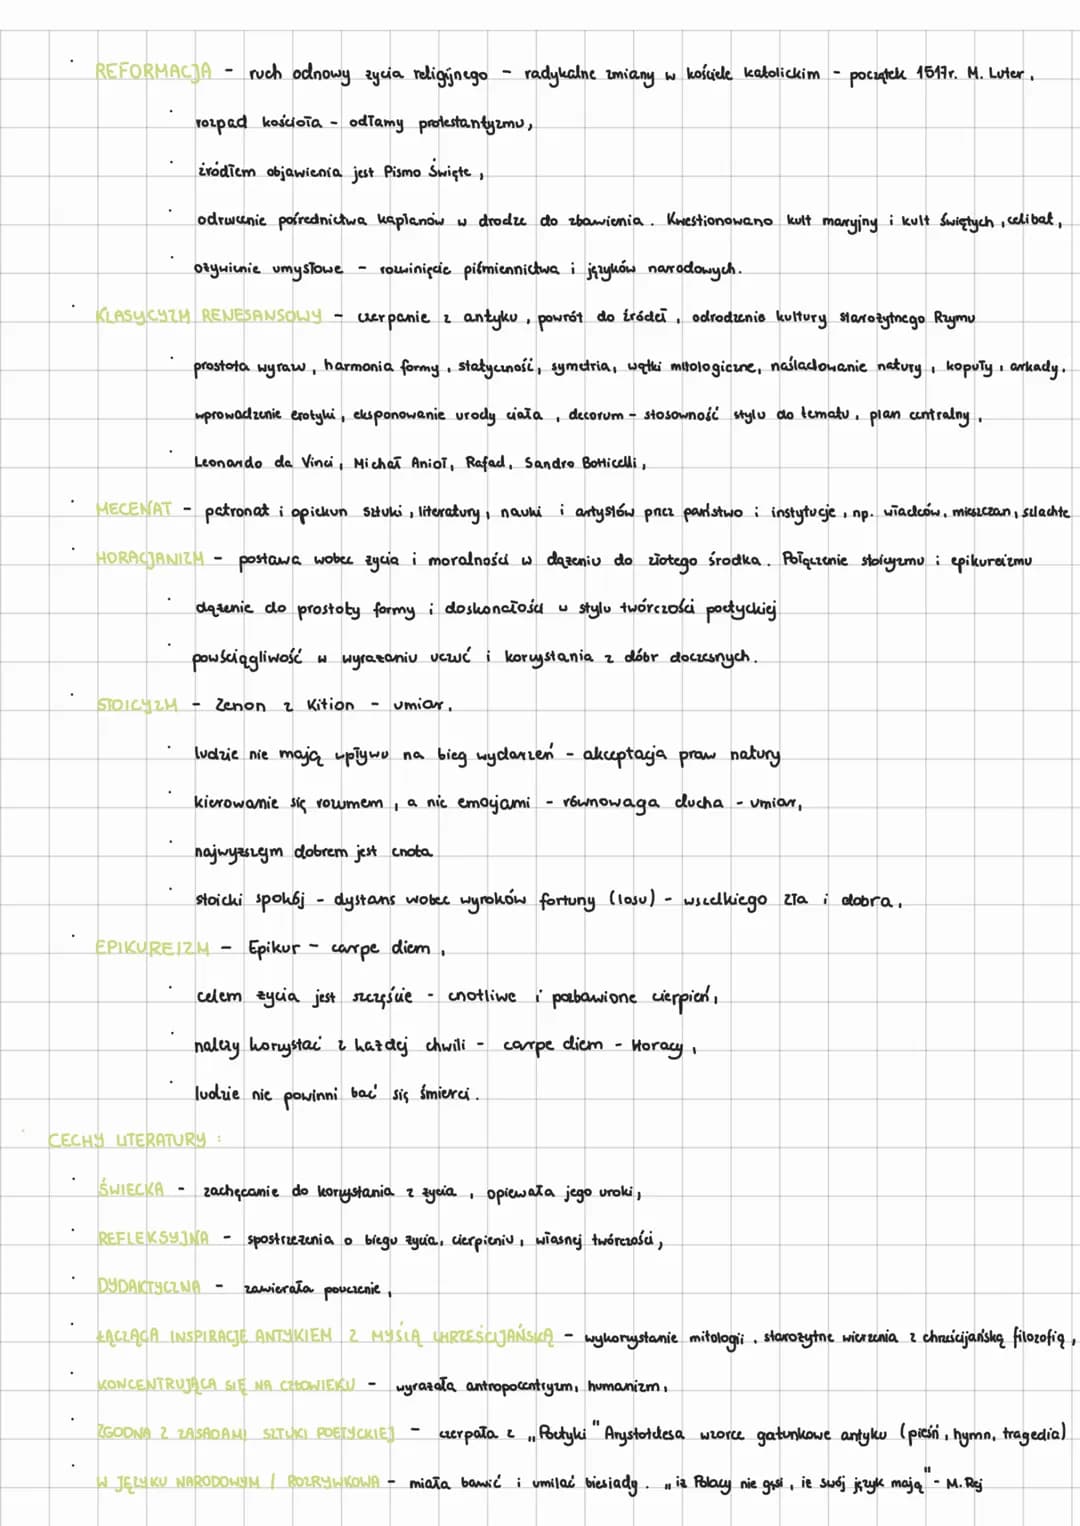 REFORMACJA - ruch odnowy życia religijnego - radykalne zmiany w kościele katolickim - początek 1517r. M. Luter,
rozpad kościoła - odłamy protestantyzmu,
źródłem objawienia jest Pismo Święte,
odrzucenie pośrednictwa kapłanów w drodze do zbawienia. Kwestionowano kult maryjny i kult świętych, celibat,
ożywienie umysłowe - rozwinięcie piśmiennictwa i języków narodowych.
KLASYCYZM RENESANSOWY - czerpanie z antyku, powrót do źródeł, odrodzenie kultury starożytnego Rzymu
prostota wyrazu, harmonia formy, statyczność, symetria, wątki mitologiczne, naśladowanie natury, kopuły, arkady.
wprowadzenie erotyki, eksponowanie urody ciała, decorum - stosowność stylu do tematu, plan centralny,
Leonardo da Vinci, Michał Anioł, Rafael, Sandro Botticelli,
MECENAT - patronat i opiekun sztuki, literatury, nauki i artystów przez państwo i instytucje, np. władców, mieszczan, szlachtę
HORACJANIZM - postawa wobec życia i moralności w dążeniu do złotego środka. Połączenie stoicyzmu i epikureizmu
dążenie do prostoty formy i doskonałości w stylu twórczości poetyckiej
powściągliwość w wyrażaniu uczuć i korzystania z dóbr doczesnych.
STOICYZM - Zenon z Kition - umiar,
ludzie nie mają wpływu na bieg wydarzeń - akceptacja praw natury
kierowanie się rozumem, a nie emocjami - równowaga ducha - umiar,
najwyższym dobrem jest cnota
stoicki spokój - dystans wobec wyroków fortuny (losu) - wszelkiego zła i dobra,
EPIKUREIZM - Epikur - carpe diem,
celem życia jest szczęście - cnotliwe i pozbawione cierpień,
należy korzystać z każdej chwili - carpe diem - Horacy,
ludzie nie powinni bać się śmierci.
CECHY LITERATURY:
ŚWIECKA - zachęcanie do korzystania z życia, opiewała jego uroki,
REFLEKSYJNA - spostrzeżenia o biegu życia, cierpieniu, własnej twórczości,
DYDAKTYCZNA - zawierała pouczenie,
ŁĄCZĄCA INSPIRACJE ANTYKIEM Z MYŚLĄ CHRZEŚCIJAŃSKĄ - wykorzystanie mitologii, starożytne wierzenia z chrześcijańską filozofią,
KONCENTRUJĄCA SIĘ NA CZŁOWIEKU - wyrażała antropocentryzm, humanizm,
ZGODNA Z ZASADAMI SZTUKI POETYCKIEJ - czerpała z „Poetyki" Arystotelesa wzorce gatunkowe antyku (pieśń, hymn, tragedia)
W JĘZYKU NARODOWYM / ROZRYWKOWA - miała bawić i umilać biesiady. „iż Polacy nie gęsi, iż swój język mają" - M. Rej